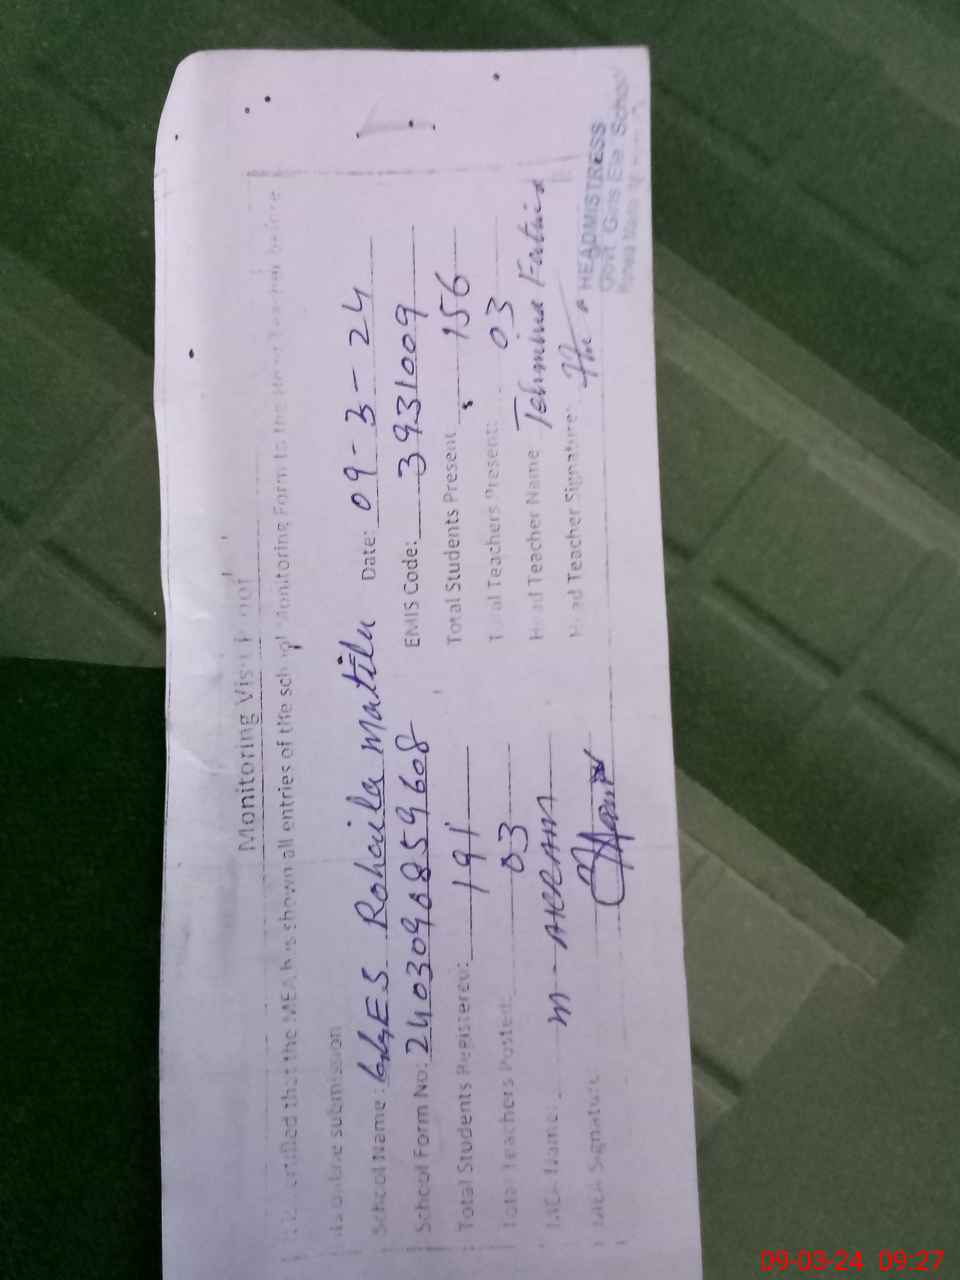 Monitoring Visit Proof
certified that the MEA has shown all entries of the school Monitoring Form to the Head Teacher before
his online submission
School Name: GGES Rohaila Matila Date: 09-3-24
School Form No: 24030908859608 EMIS Code: 3931009
Total Students Registered: 191 Total Students Present 156
Total Teachers Posted: 03 Total Teachers Present: 03
MEA Name: M-AKRAM Head Teacher Name Tehmina Fatima
MEA Signature Head Teacher Signature:
HEADMISTRESS
Govt. Girls Ele. School
09-03-24 09:27